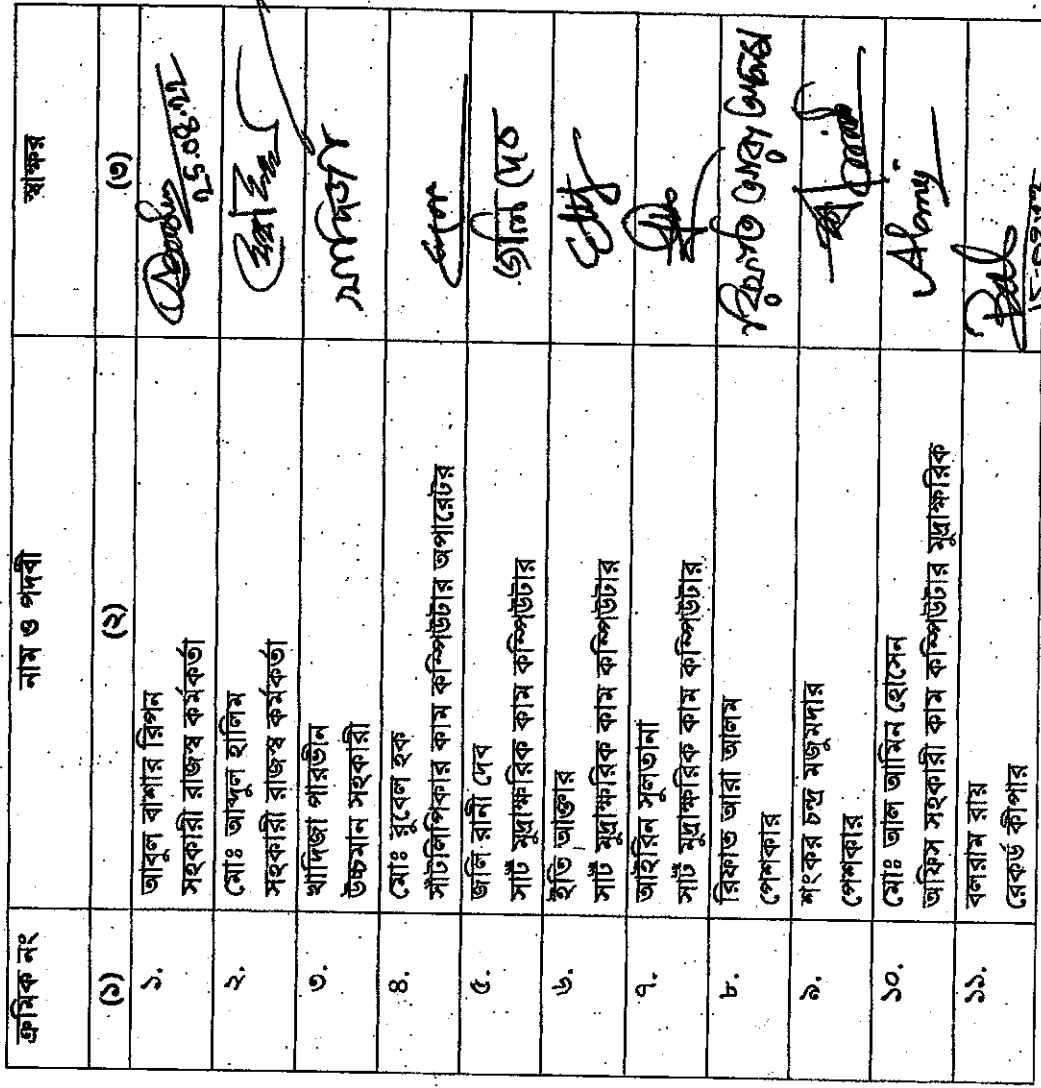 ক্রমিক নং নাম ও পদবী স্বাক্ষর
(১) (২) (৩)
১. আবুল বাশার রিপন
সহকারী রাজস্ব কর্মকর্তা
২৫.০৪.২২
২. মোঃ আব্দুল হালিম
সহকারী রাজস্ব কর্মকর্তা
৩. খাদিজা পারভীন
উচ্চমান সহকারী
৪. মোঃ রুবেল হক
সাঁটলিপিকার কাম কম্পিউটার অপারেটর
৫. জলি রানী দেব জলি দেব
সাট মুদ্রাক্ষরিক কাম কম্পিউটার
৬. ইতি আক্তার
সাট মুদ্রাক্ষরিক কাম কম্পিউটার
৭. আইরিন সুলতানা
সাট মুদ্রাক্ষরিক কাম কম্পিউটার
৮. রিফাত আরা আলম
পেশকার
৯. শংকর চন্দ্র মজুমদার
পেশকার
১০. মোঃ আল আমিন হোসেন
অফিস সহকারী কাম কম্পিউটার মুদ্রাক্ষরিক
১১. বলরাম রায়
রেকর্ড কীপার